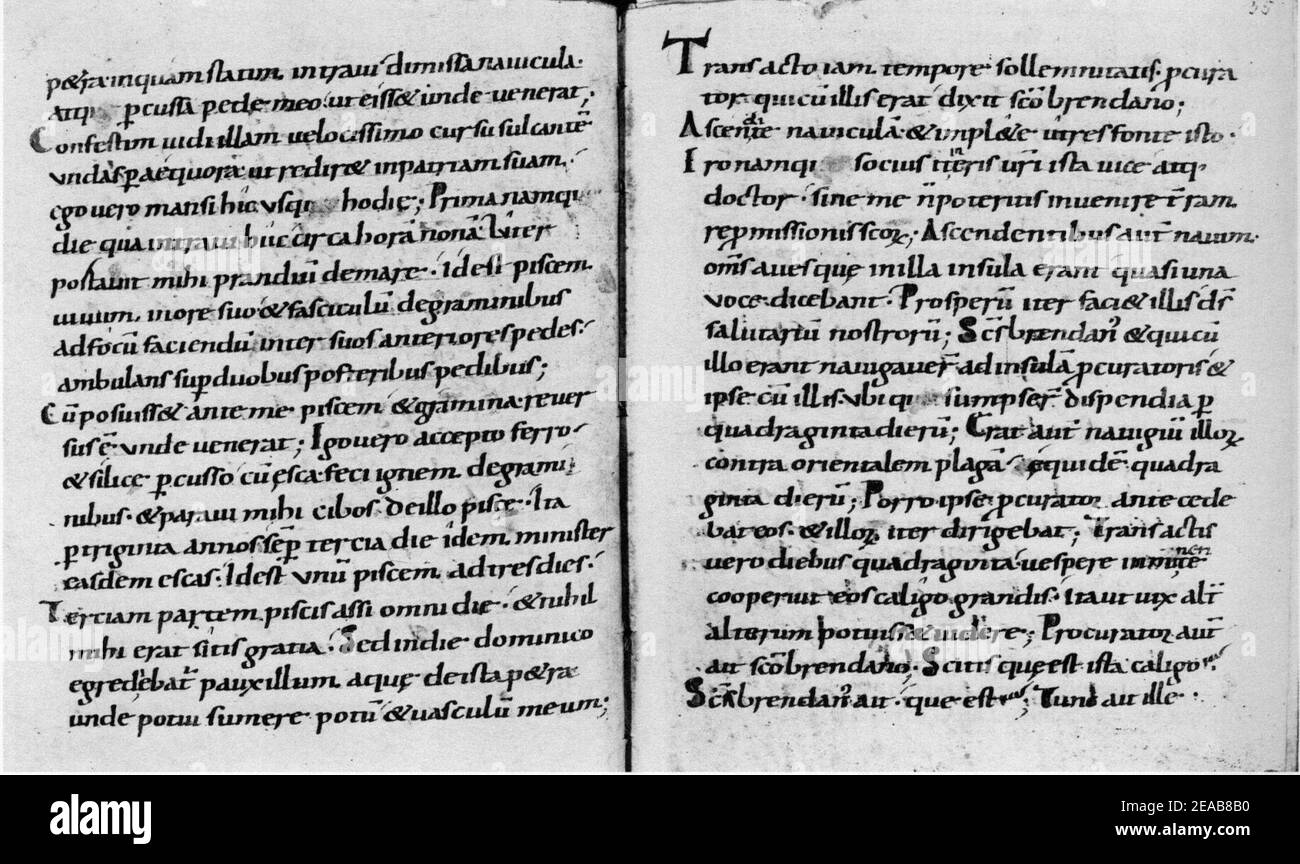 p&ra inquam statim intraui dimissa nauicula·
atq; p̄cussa pede meo ut eiss& unde uenerat;
Confestim uidi illam uelocissimo cursu sulcantē
undas p̄ aequora ut redir& in patriam suam·
ego uero mansi hic usq; hodię; Prima namq;
die qua intraui huc circa horā nonā luter
postauit mihi prandiū de mare· id est piscem
in ore suo & fasciculū de graminibus
ad focū faciendū inter suos anteriores pedes·
ambulans sup̄ duobus posteribus pedibus;
Cū posuiss& ante me piscem & gramina reuer
sus ē unde uenerat; Igo uero accepto ferro·
& silice p̄cusso cū esca feci ignem de grami
nibus· & paraui mihi cibos de illo pisce· Ita
p̄ triginta annos sēp tercia die idem minister
easdem escas· Id est unū piscem ad tres dies·
Terciam partem piscis assi omni die· & nihil
mihi erat sitis gratia· Sed in die dominico
egredebat̄ pauxillum aquę de ista p&ra
unde potui sumere potū & uasculū meum;
35
Transacto iam tempore sollemnitatis· p̄cura
tor· qui cū illis erat dixit sc̄o brendano;
Ascendite nauiculā & impl&e utres fonte isto·
Ero namq; socius itineris ur̄i ista uice atq;
doctor· sine me n̄ poteritis inuenire t̄ram
rep̄missionis sc̄oꝝ; Ascendentibus aut̄ nauim·
om̄s aues quę in illa insula erant quasi una
uoce dicebant· Prosperū iter faci& illis d̄s
salutariū nostrorū; Sc̄s brendan᾽ & qui cū
illo erant nauigauer̄ ad insulā p̄curatoris &
ipse cū illis· ubi sumpser̄ dispendia p̄
quadraginta dierū; Erat aut̄ nauigiū illoꝝ
contra orientalem plagā ęquidē quadra
ginta dierū; Porro ipse p̄curator antecede
bat eos· & illoꝝ iter dirigebat; Transactis
uero diebus quadraginta· uespere imminente
cooperuit eos caligo grandis· Ita ut uix alt̄
alterum potuiss& uidere; Procurator aut̄
ait sc̄o brendano; Scitis quę est ista caligo
Sc̄s brendan᾽ ait· que est; Tunc ait ille·